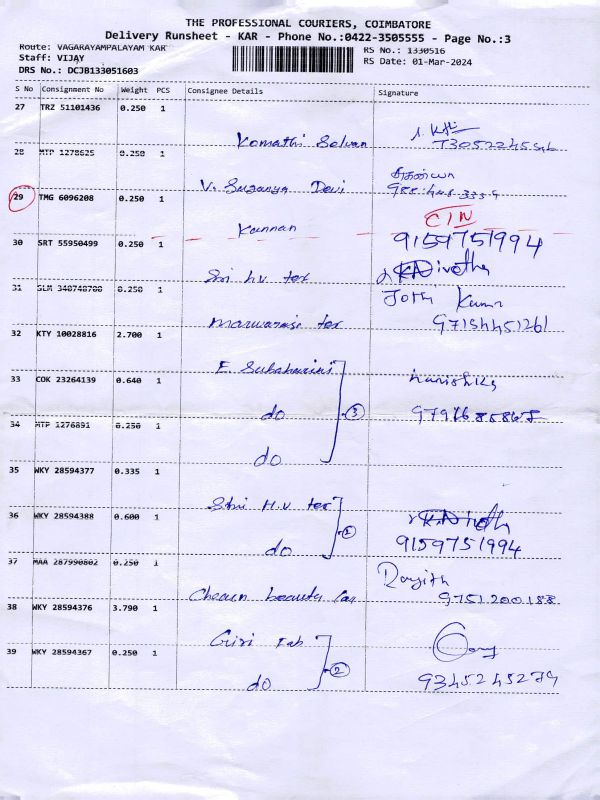 THE PROFESSIONAL COURIERS, COIMBATORE
Delivery Runsheet - KAR - Phone No.:0422-3505555 - Page No.:3
Route: VAGARAYAMPALAYAM KAR
RS No.: 1330516
Staff: VIJAY
RS Date: 01-Mar-2024
DRS No.: DCJB133051603
S No Consignment No Weight PCS Consignee Details Signature
27 TRZ 51101436 0.250 1
Komathi Selvan
28 MTP 1278625 0.250 1
V. Suganya Devi
29 TMG 6096208 0.250 1
CIN
Kannan
9159751994
30 SRT 55950499 0.250 1
Sri h.v tex
31 GLM 340748780 0.250 1
Jothi Kumar
tex
97154451261
32 KTY 10028816 2.700 1
33 COK 23264139 0.640 1
do 3
34 MTP 1276891 0.250 1
do
35 WKY 28594377 0.335 1
Stri H.v tex
36 WKY 28594388 0.600 1
2
do 9159751994
37 MAA 287990802 0.250 1
Ranjith
9751200188
38 WKY 28594376 3.790 1
Giri Fab
39 WKY 28594367 0.250 1
2
do 9345245279